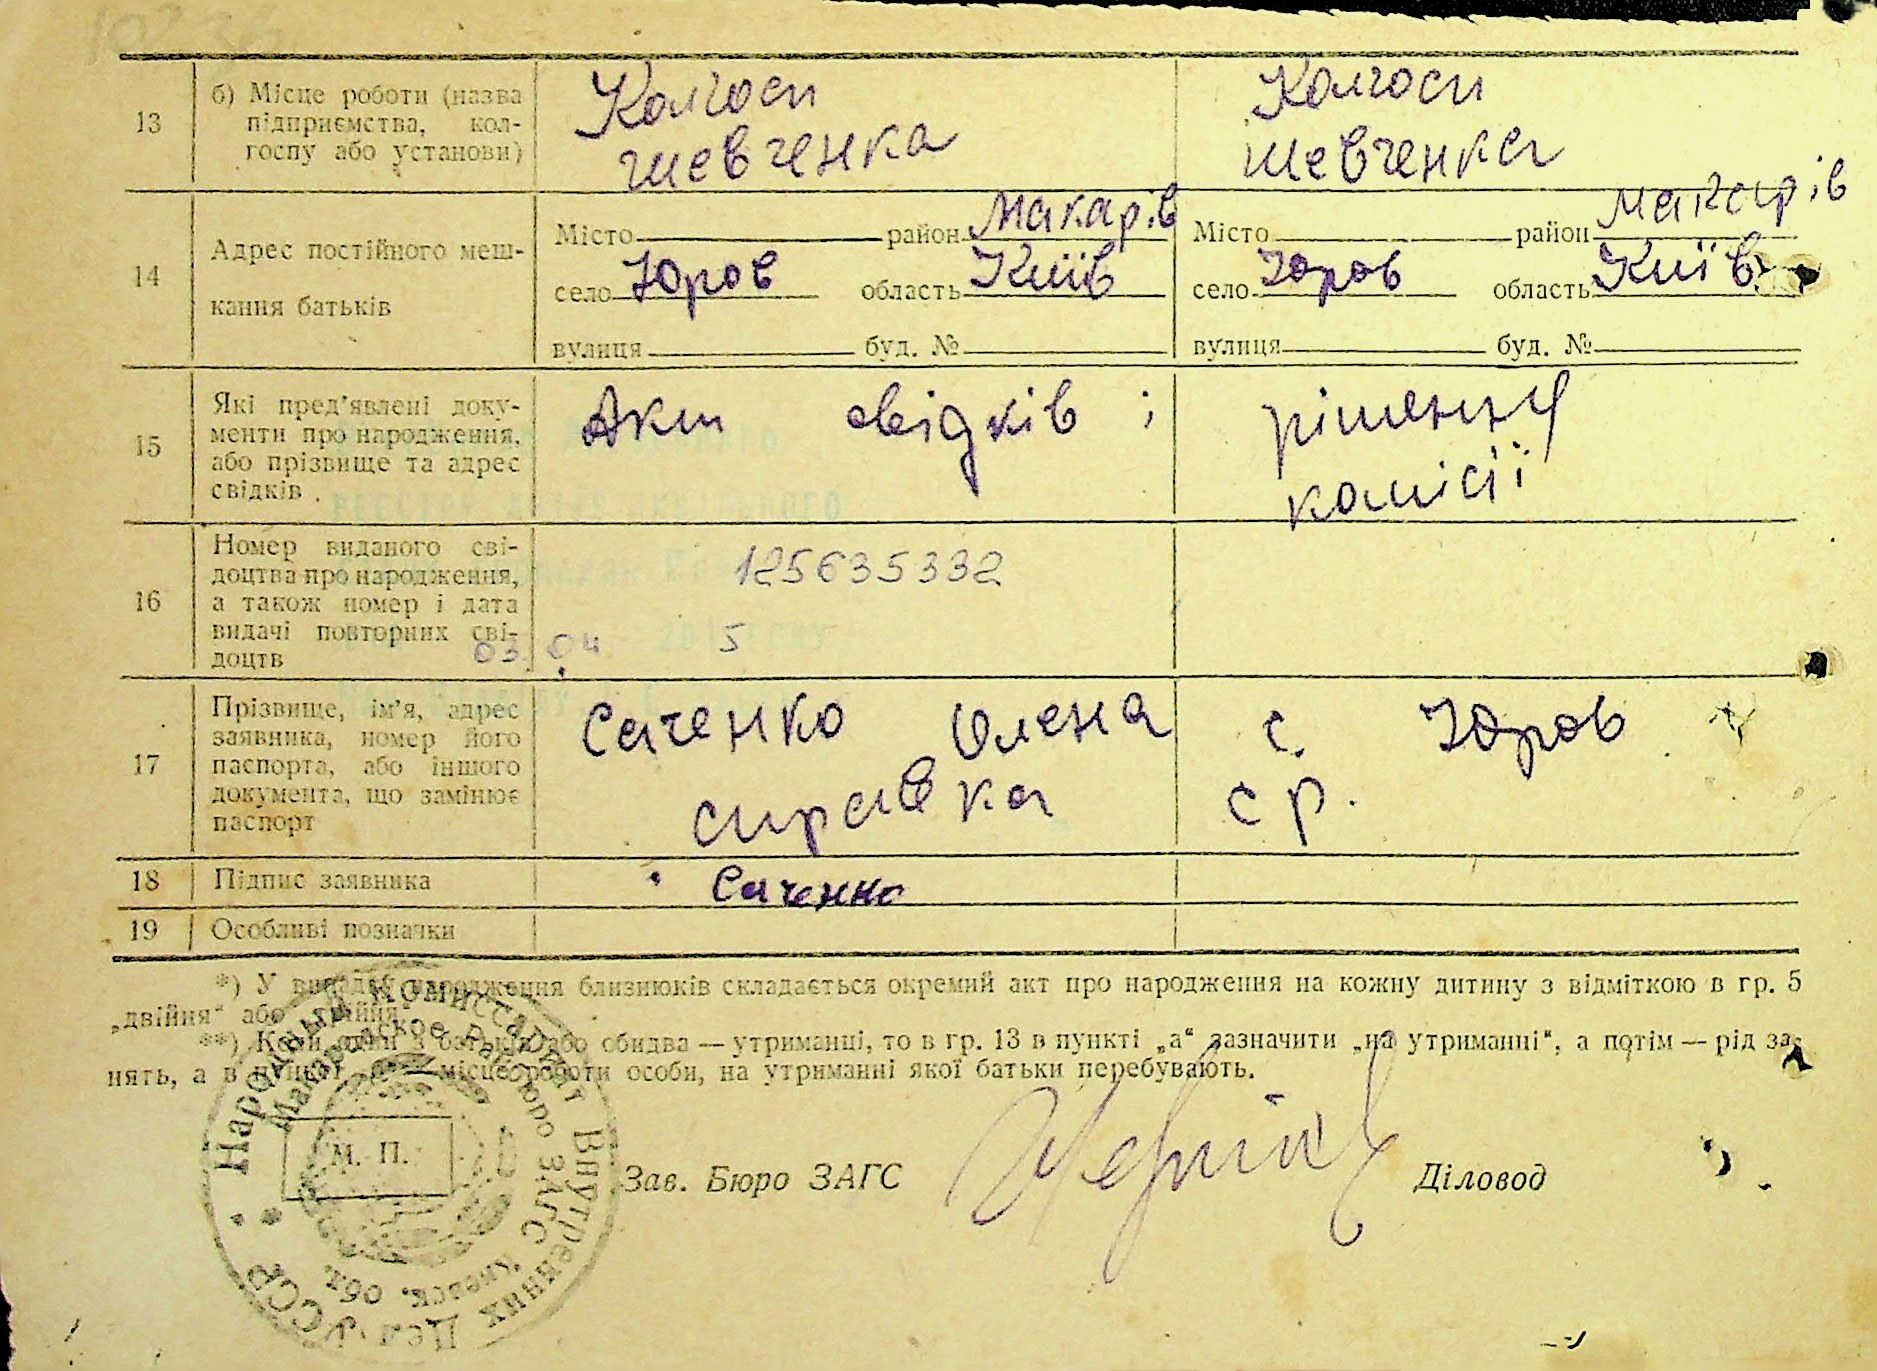 13
б) Місце роботи (назва
підприємства, кол-
госпу або установи)
Колгосп
шевченка
Колгосп
шевченка
14
Адрес постійного меш-
кання батьків
Місто район Макарів
село Юров область Київ
вулиця буд. №
Місто район Макарів
село Юров область Київ
вулиця буд. №
15
Які пред’явлені доку-
менти про народження,
або прізвище та адрес
свідків
Акт свідків і
рішення
комісії
16
Номер виданого сві-
доцтва про народження,
а також номер і дата
видачі повторних сві-
доцтв
125635332
03 04 5
17
Прізвище, ім’я, адрес
заявника, номер його
паспорта, або іншого
документа, що замінює
паспорт
Саченко Олена с. Юров
справка с р.
18
Підпис заявника
Саченко
19
Особливі позначки
*) У випадку народження близнюків складається окремий акт про народження на кожну дитину з відміткою в гр. 5
„двійня“ або „трійня“.
**) Коли один з батьків або обидва — утриманці, то в гр. 13 в пункті „а“ зазначити „на утриманні“, а потім — рід за-
нять, а в пункті місце роботи особи, на утриманні якої батьки перебувають.
М. П.
Народный Комиссариат Внутренних Дел УССР
Макаровское рай бюро ЗАГС Киевск. обл.
Зав. Бюро ЗАГС
Діловод